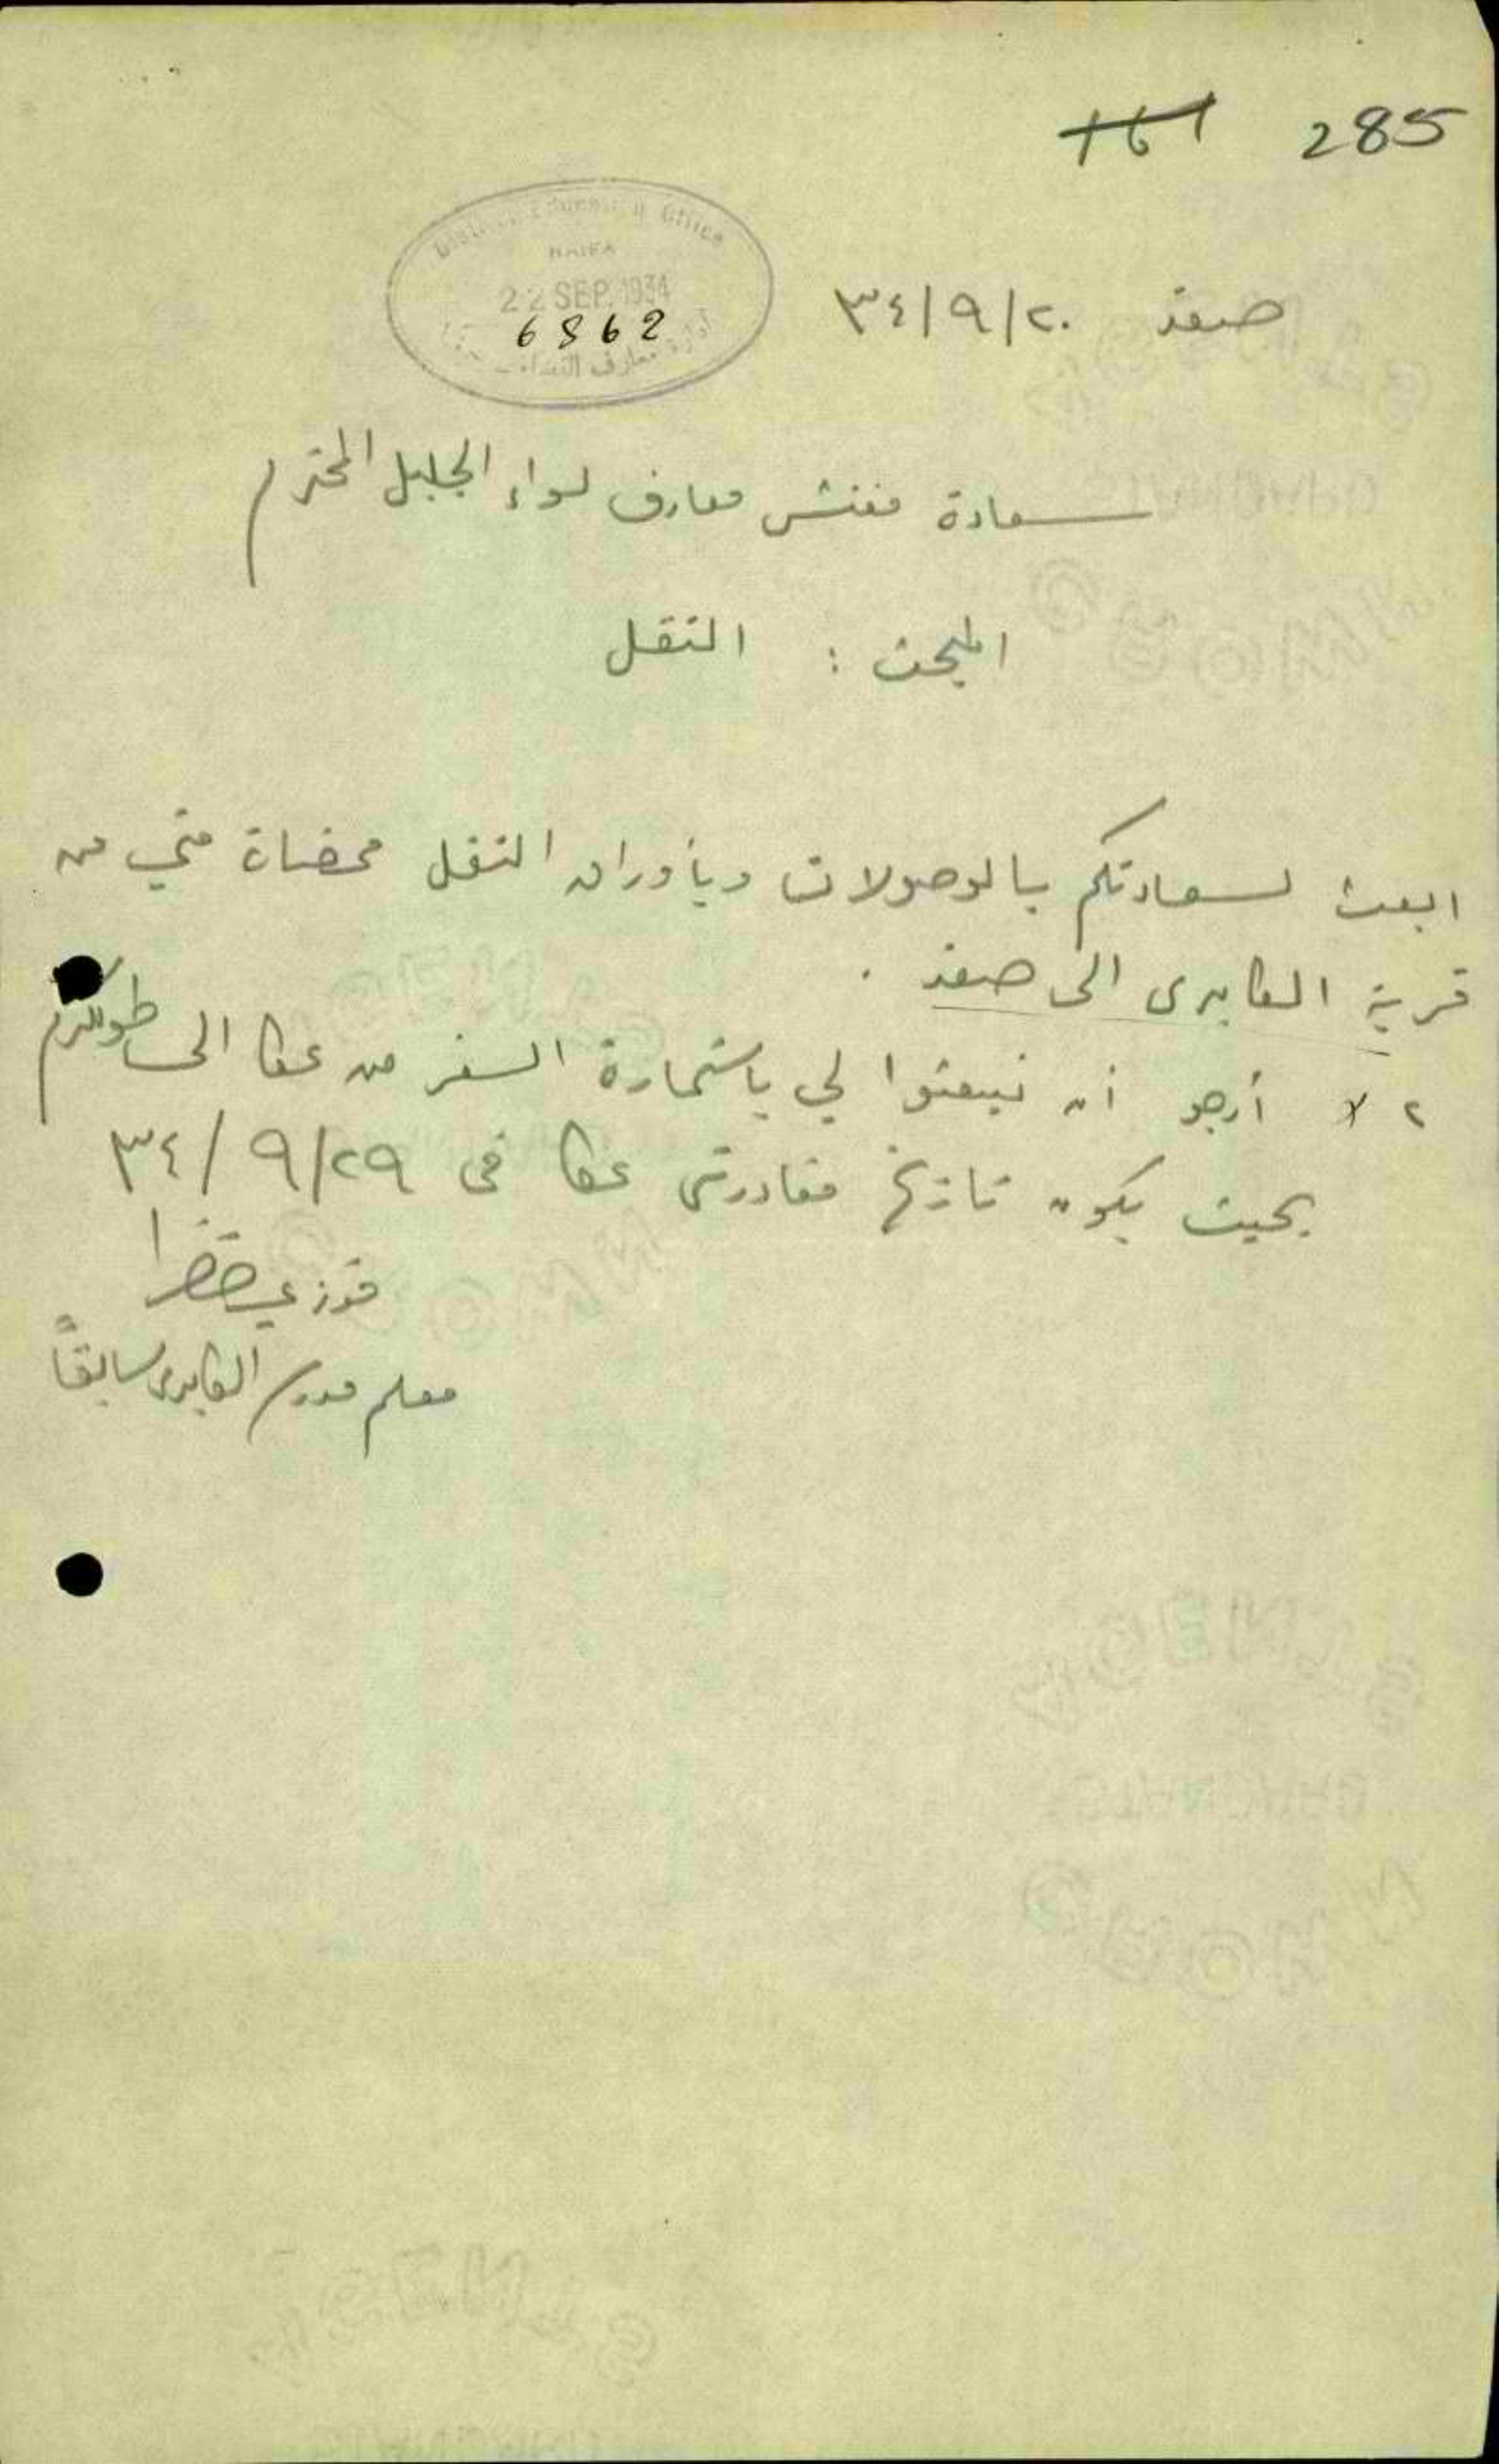 161 285
District Education Office
HAIFA
22 SEP. 1934
6862
ادارة معارف اللواء
صفد ٢٠/٩/٣٤
سعادة مفتش معارف لواء الجليل المحترم
المبحث : النقل
ابعث لسعادتكم بالوصولات وبأوراق النقل ممضاة مني من
قرية الكابري الى صفد .
٢ أرجو أن تبعثوا لي باستمارة السفر من عكا الى طولكرم
بحيث يكون تاريخ مغادرتي عكا في ٢٩/٩/٣٤
فوزي خضرا
معلم مدرسة الكابري سابقاً